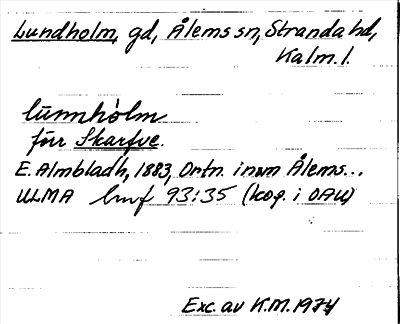 Lundholm, gd, Ålems sn, Stranda hd,
Kalm. l.
lūnnhòlm
förr Skarfve.
E. Almbladh, 1883, Ortn. inom Ålems...
ULMA hvuf 93:35 (kop. i OAU)
Exc. av K.M. 1974